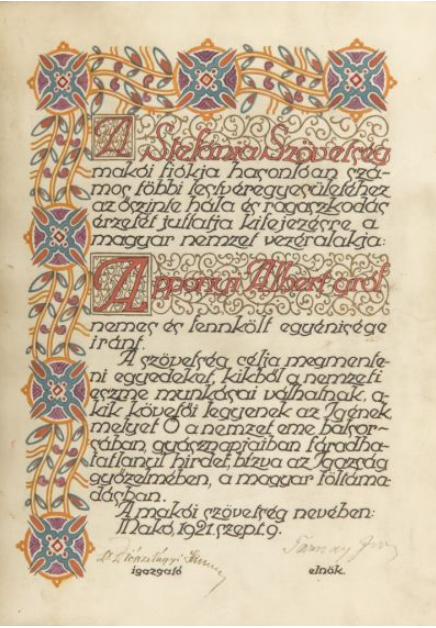 A Stefánia Szövetség
makói fiókja hasonlóan szá-
mos többi testvéregyesületéhez
az őszinte hála és ragaszkodás
érzetét juttatja kifejezésre a
magyar nemzet vezéralakja:
Apponyi Albert gróf
nemes és fennkölt egyénisége
iránt.
A szövetség célja megmente-
ni egyedeket, kikből a nemzeti
eszme munkásai válhatnak, a-
kik követői legyenek az Igének
melyet Ő a nemzet eme balsor-
sában, gyásznapjaiban fáradha-
tatlanul hirdet, bízva az Igazság
győzelmében, a magyar föltáma-
dásban.
A makói szövetség nevében:
Makó, 1921. szept. 9.
Dr Diószilágyi
igazgató
elnök.